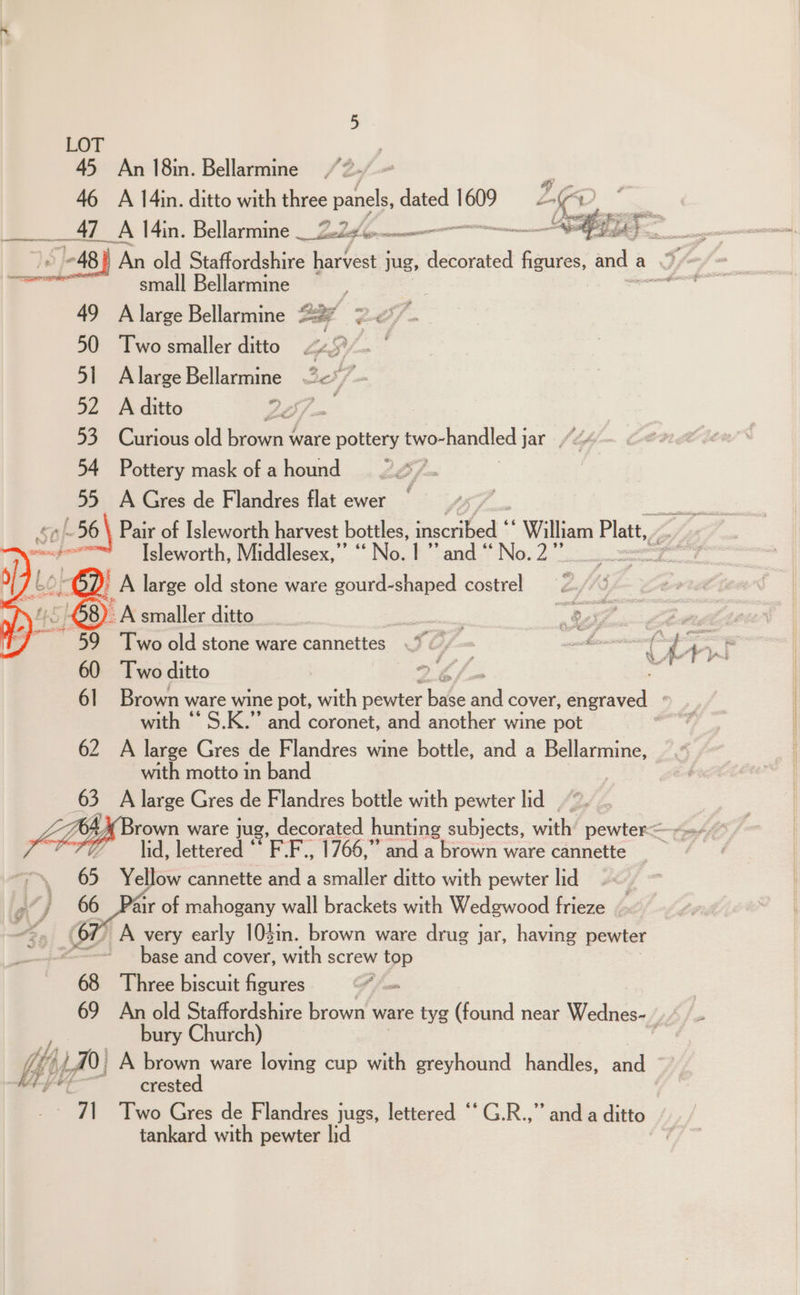 5
LOT
45 An 18in. Bellarmine
46 A 14in. ditto with three panels, dated 1609
47 A 14in. Bellarmine
48 An old Staffordshire harvest jug, decorated figures, and a
small Bellarmine
49 A large Bellarmine
50 Two smaller ditto
51 A large Bellarmine
52 A ditto
53 Curious old brown ware pottery two-handled jar
54 Pottery mask of a hound
55 A Gres de Flandres flat ewer
56 Pair of Isleworth harvest bottles, inscribed “ William Platt,
Isleworth, Middlesex,” “ No. 1 ” and “ No. 2 ”
67 A large old stone ware gourd-shaped costrel
68 A smaller ditto
59 Two old stone ware cannettes
60 Two ditto
61 Brown ware wine pot, with pewter base and cover, engraved
with “ S.K.” and coronet, and another wine pot
62 A large Gres de Flandres wine bottle, and a Bellarmine,
with motto in band
63 A large Gres de Flandres bottle with pewter lid
64 Brown ware jug, decorated hunting subjects, with pewter
lid, lettered “ F.F., 1766,” and a brown ware cannette
65 Yellow cannette and a smaller ditto with pewter lid
66 Pair of mahogany wall brackets with Wedgwood frieze
67 A very early 10½in. brown ware drug jar, having pewter
base and cover, with screw top
68 Three biscuit figures
69 An old Staffordshire brown ware tyg (found near Wednes-
bury Church)
70 A brown ware loving cup with greyhound handles, and
crested
71 Two Gres de Flandres jugs, lettered “ G.R.,” and a ditto
tankard with pewter lid